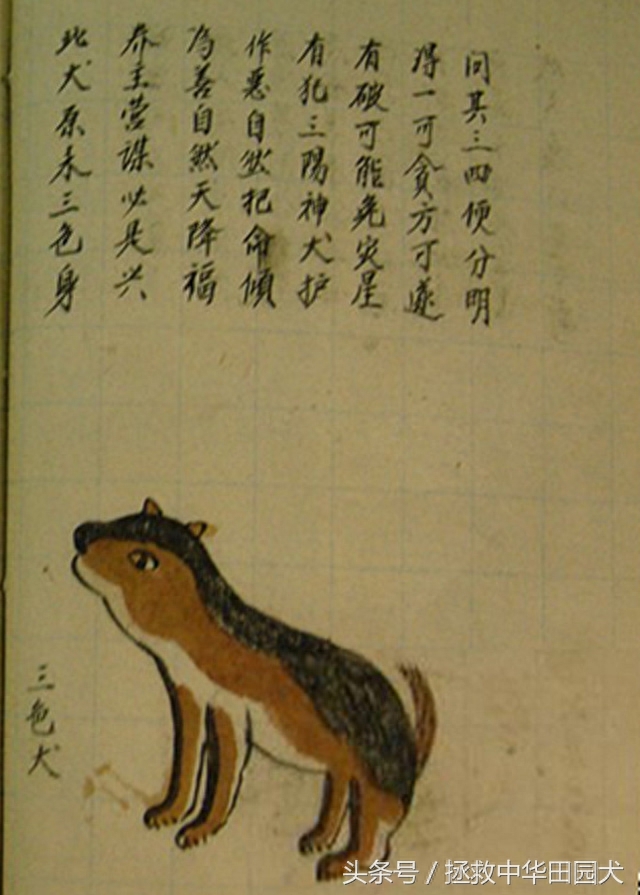 此犬原来三色身
养主营谋必是兴
為善自然天降福
作惡自然把命傾
有犯三陽神犬护
有破可能免灾星
得一可貪方可遂
问其三四便分明
三色犬
头条号 / 拯救中华田园犬